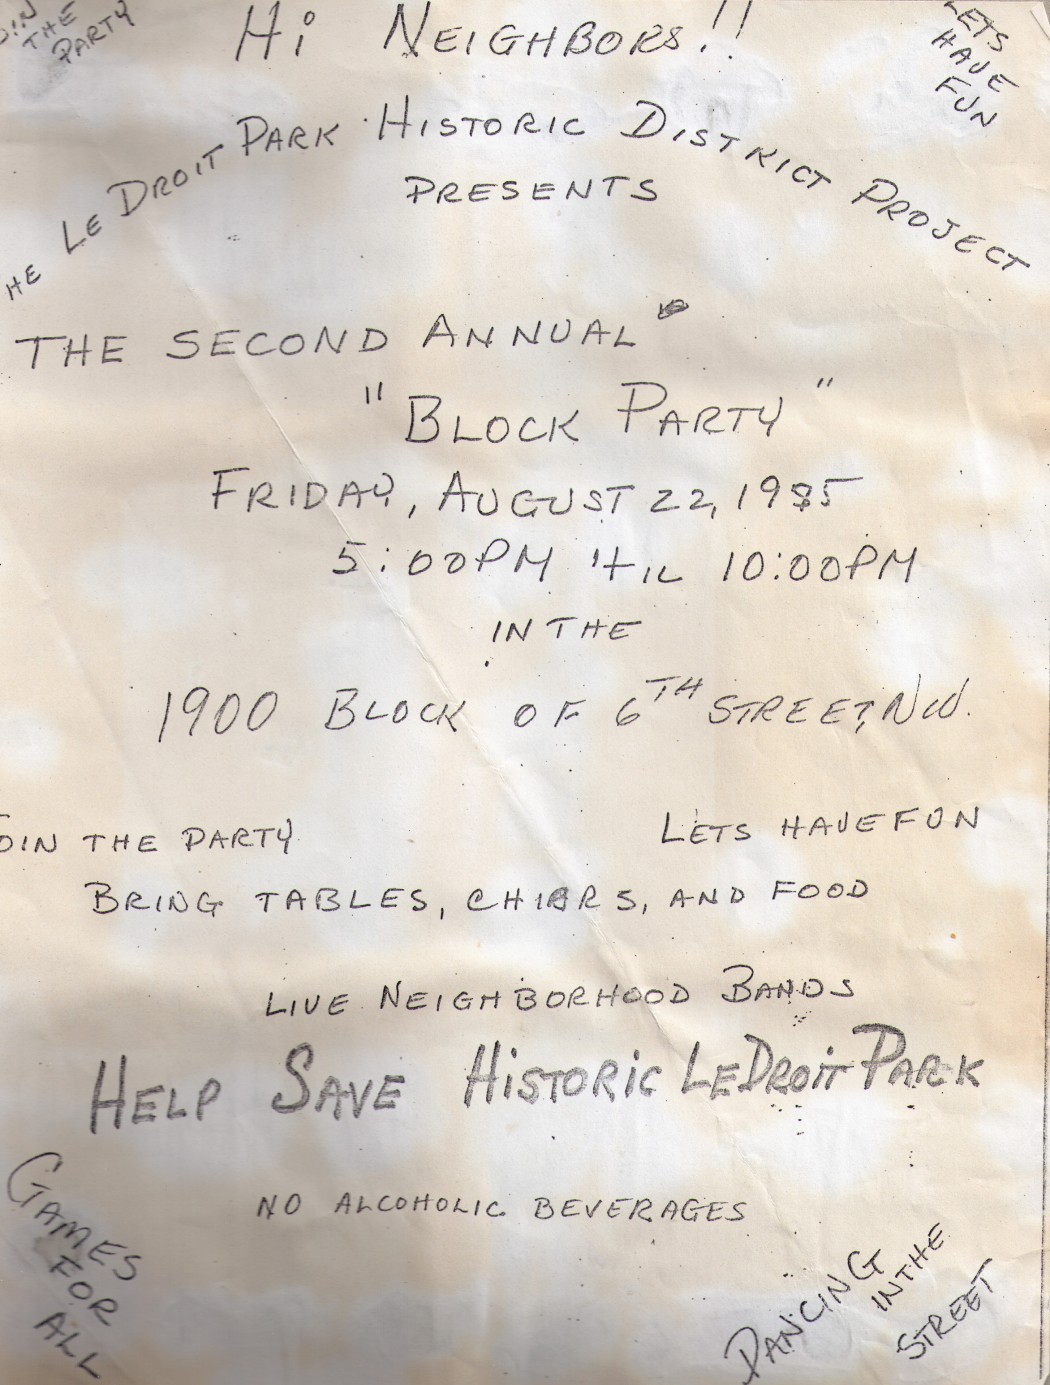 OIN
THE
PARTY
HI NEIGHBORS!!
LETS
HAVE
FUN
HE LE DROIT PARK HISTORIC DISTRICT PROJECT
PRESENTS
THE SECOND ANNUAL
"BLOCK PARTY"
FRIDAY, AUGUST 22, 1985
5:00PM 'TIL 10:00PM
IN THE
1900 BLOCK OF 6TH STREET, NW.
OIN THE PARTY
LETS HAVE FUN
BRING TABLES, CHIARS, AND FOOD
LIVE NEIGHBORHOOD BANDS
HELP SAVE HISTORIC LEDROIT PARK
NO ALCOHOLIC BEVERAGES
GAMES
FOR
ALL
DANCING
IN THE
STREET